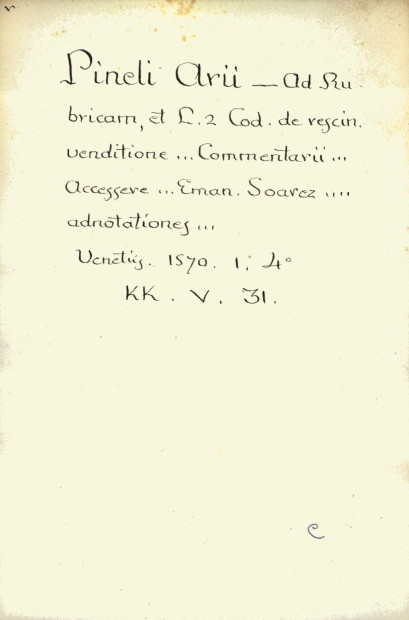 Pineli Arii — Ad Ru-
bricam, et L. 2 Cod. de rescin.
venditione ... Commentarii ...
Accessere ... Eman. Soarez ....
adnotationes ...
Venetiis. 1570. 1; 4°
KK. V. 31.
C